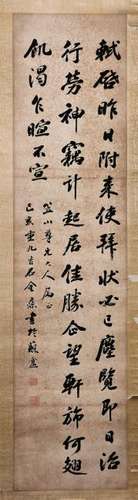 軾啓昨日附來使拜狀必已塵覽即日治
行勞神竊計起居佳勝企望軒旆何翅
飢渴乍暄不宣
山尊兄大人屬正
己亥重九吉石金書於蘇